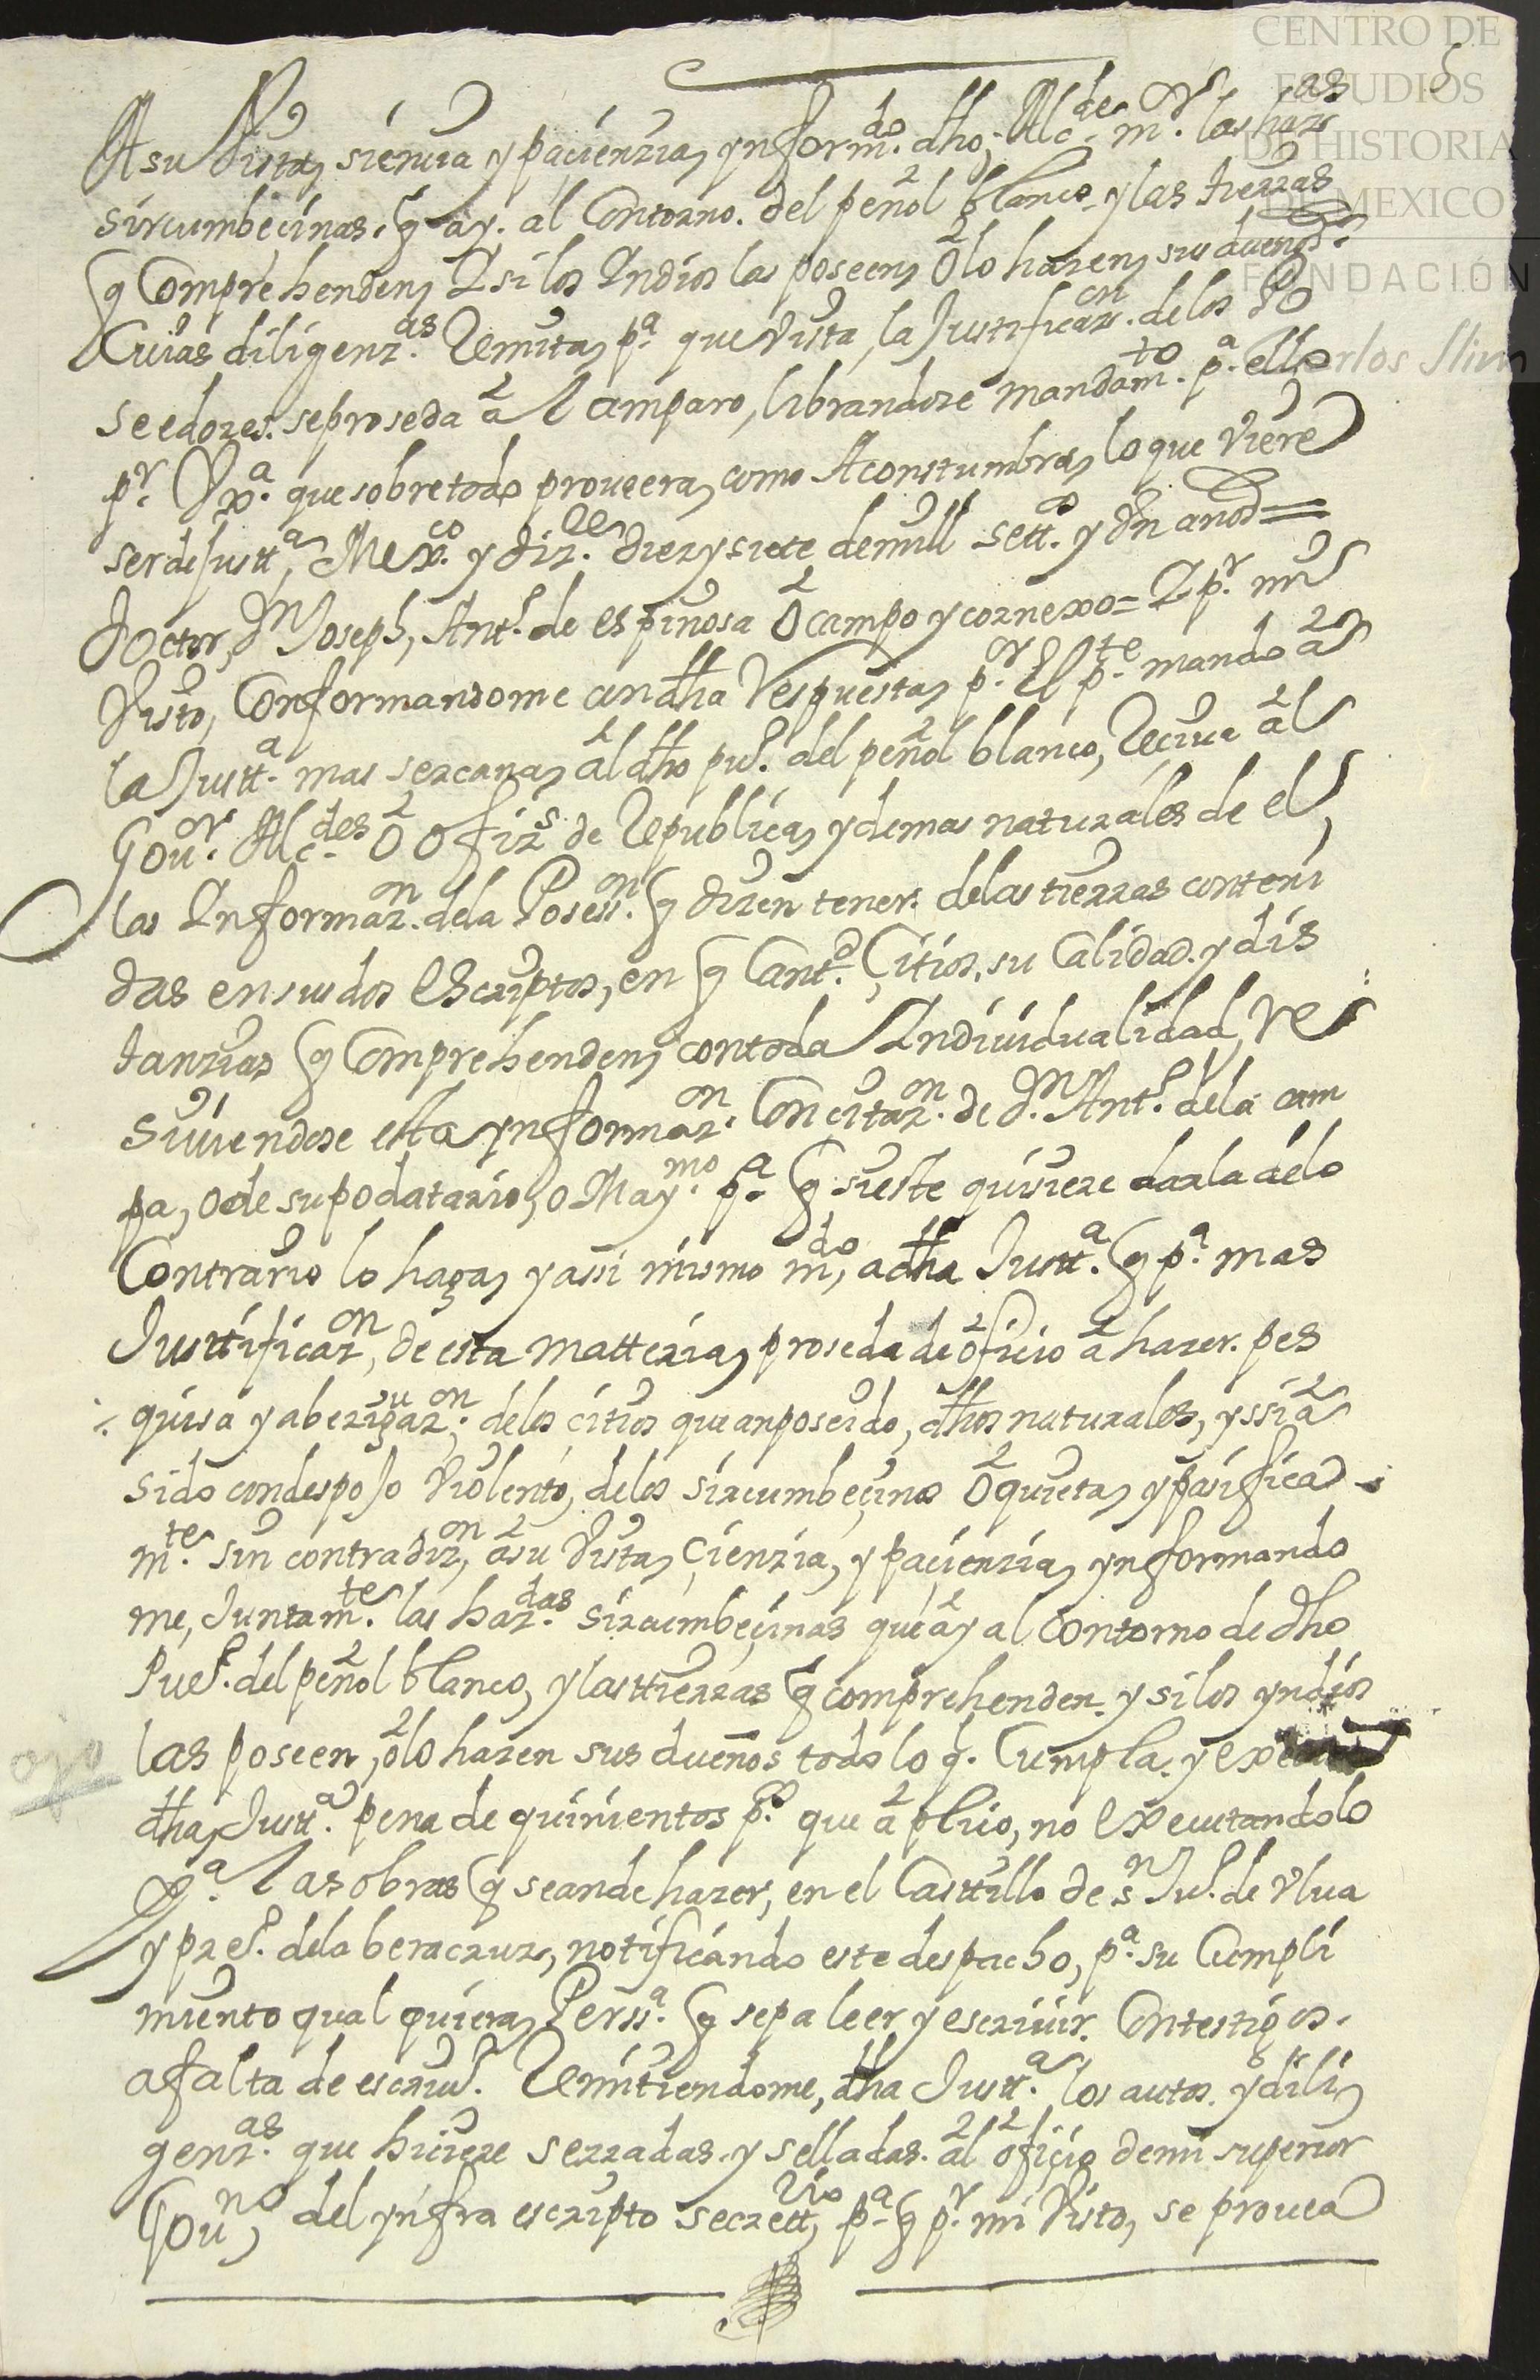 CENTRO DE
ESTUDIOS
DE HISTORIA
DE MEXICO
FONDACIÓN
Carlos Slim
5
A su Vista, siencia y paçienzia, ynformdo. dho, Alcde. mr. las hazas
sircumbeçinas, q ay. al Contorno. del peñol blanco, y las tierras
q Comprehenden, Y si los Yndios las poseen, O lo hazen, sus dueños.
Cuias diligenzas. Remita, pa. que Vista, la Justificazon. de los Po
seedores. se proseda a l amparo, librandose mandamto. pa. ello
pr. Vxa. que sobre todo proveera, como Aconstumbra, lo que Viere
ser de Justta, Mexco. y dizre. diez y siete de mill settos. y Vn años=
Doctor, Dn Joseph, Anto. de espinosa Ocampo y cornexo= Y pr. mi
Visto, Conformandome con dha Respuesta, pr. El pte. mando a
la Justta. mas sercana, al dho puo. del peñol blanco, Reciva al
Gouor. Alcdes. O Ofizs de Republica, y demas naturales de el,
las Ynformazon. de la Posesson. q dizen tener. de las tierras conteni
das en sus dos Escriptos, en q Cantd. Çitios, su Calidad. y dis
tanzias q Comprehenden, con toda Yndividualidad, Re
siuiendose esta ynformazon. Con citazon. de Dn. Anto. de la cam
pa, o de su podatario, o Maymo. pa. q si este quisiere darla de lo
Contrario lo haga, y assi mismo mdo, a dha Justta. q pa. mas
Justtificazon, de esta matteria, proseda de ofiçio a hazer. pes
quisa y aberiguazon. de los çitios que an poseido, dhos naturales, y ssi a
sido con despojo Violento, de los sircumbeçinos O quieta, y pasifica
mte. sin contradizon, a su Vista, Çienzia, y paçienzia, ynformando
me, Juntamte. las hazdas. sircumbeçinas que ay al contorno de dho
Pueo. del peñol blanco, y las ttierras q comprehenden. y si los yndios
las poseen, o lo hazen sus dueños todo lo q. Cumpla. y execute
dha, Justta. pena de quinientos po. que aplico, no Executandolo
Pa. las obras q se an de hazer, en el Casttillo de sn Juo. de Vlua
y preo. de la beracruz, notificando este despacho, pa. su Cumpli
miento qual quiera, Perssa. q sepa leer y escriuir. Con testigos.
a falta de escriuo. Remitiendome, dha Justta. los autos. y dili
genzas. que hiziere serradas. y selladas. al ofiçio de mi superior
Gouno, del ynfra escripto secrettrio, pa. q pr. mi Visto, se provea